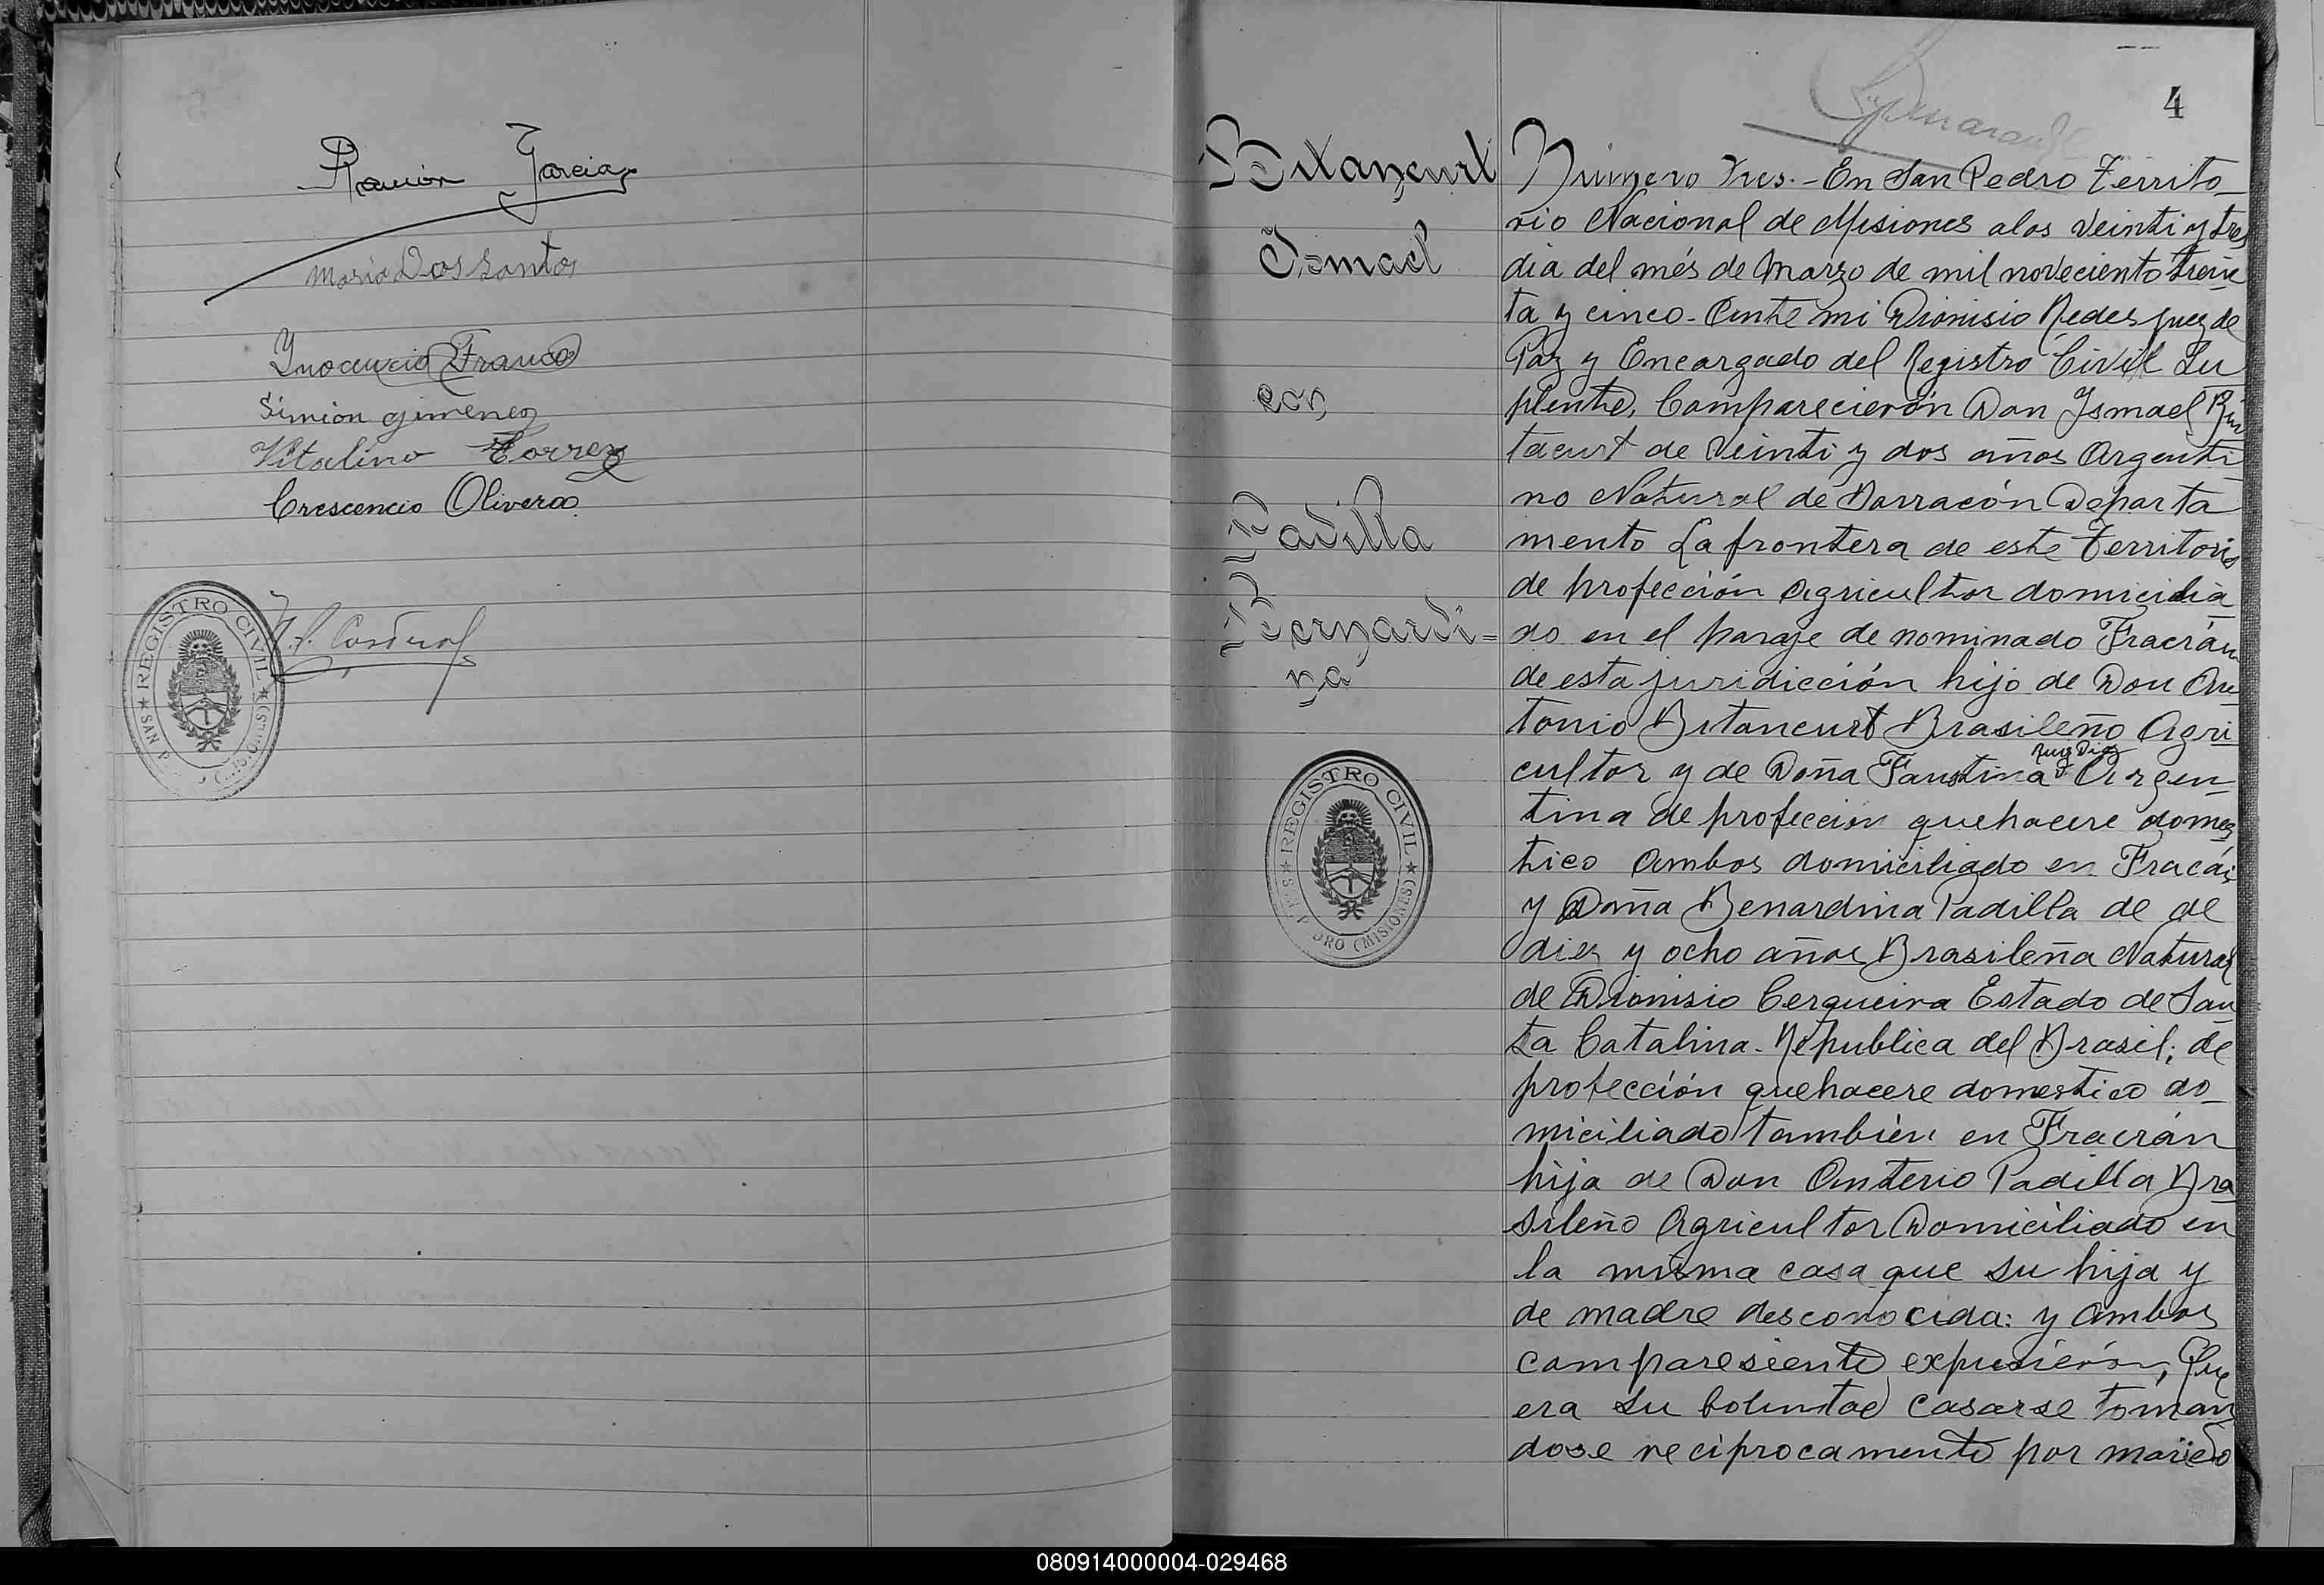 Ramón Garcia
Maria Dos Santos
Ynocencio Franco
Simion Gimenez
Vitalino Torrez
Crescencio Olivera
REGISTRO CIVIL
SAN P O (MISIO
4
Bitancurt
Ismael
con
Padilla
Bernardi=
na
REGISTRO CIVIL
SAN P DRO (MISIONES)
Número Tres.- En San Pedro Territo
rio Nacional de Misiones a los veinti y tres
dia del més de Marzo de mil noveciento trein
ta y cinco. Ante mi Dionisio Redes Juez de
Paz y Encargado del Registro Civil Su
plente, Comparecierón Don Ismael Bin
tacurt de veinti y dos años Argenti
no Natural de Barracón Departa
mento La frontera de este Territorio
de profección agricultor domicilia
do en el paraje de nominado Fracrán
de esta juridicción hijo de Don An
tonio Bitancurt Brasileño Agri
cultor y de Doña Faustina Ruiz Diaz Argen
tina de profeccion quehacere domes
tico Ambos domiciliado en Fracán
y Doña Benardina Padilla de de
diez y ocho años Brasileña Natural
de Dionisio Cerqueira Estado de San
ta Catalina. Republica del Brasil; de
profección quehacere domestico do
miciliado también en Fracrán
hija de Don Anterio Padilla Bra
sileño Agricultor Domiciliado en
la misma casa que su hija y
de madre desconocida: y ambos
comparesiente expusierón, Que
era su boluntad casarse toman
dose reciprocamente por marido
080914000004-029468